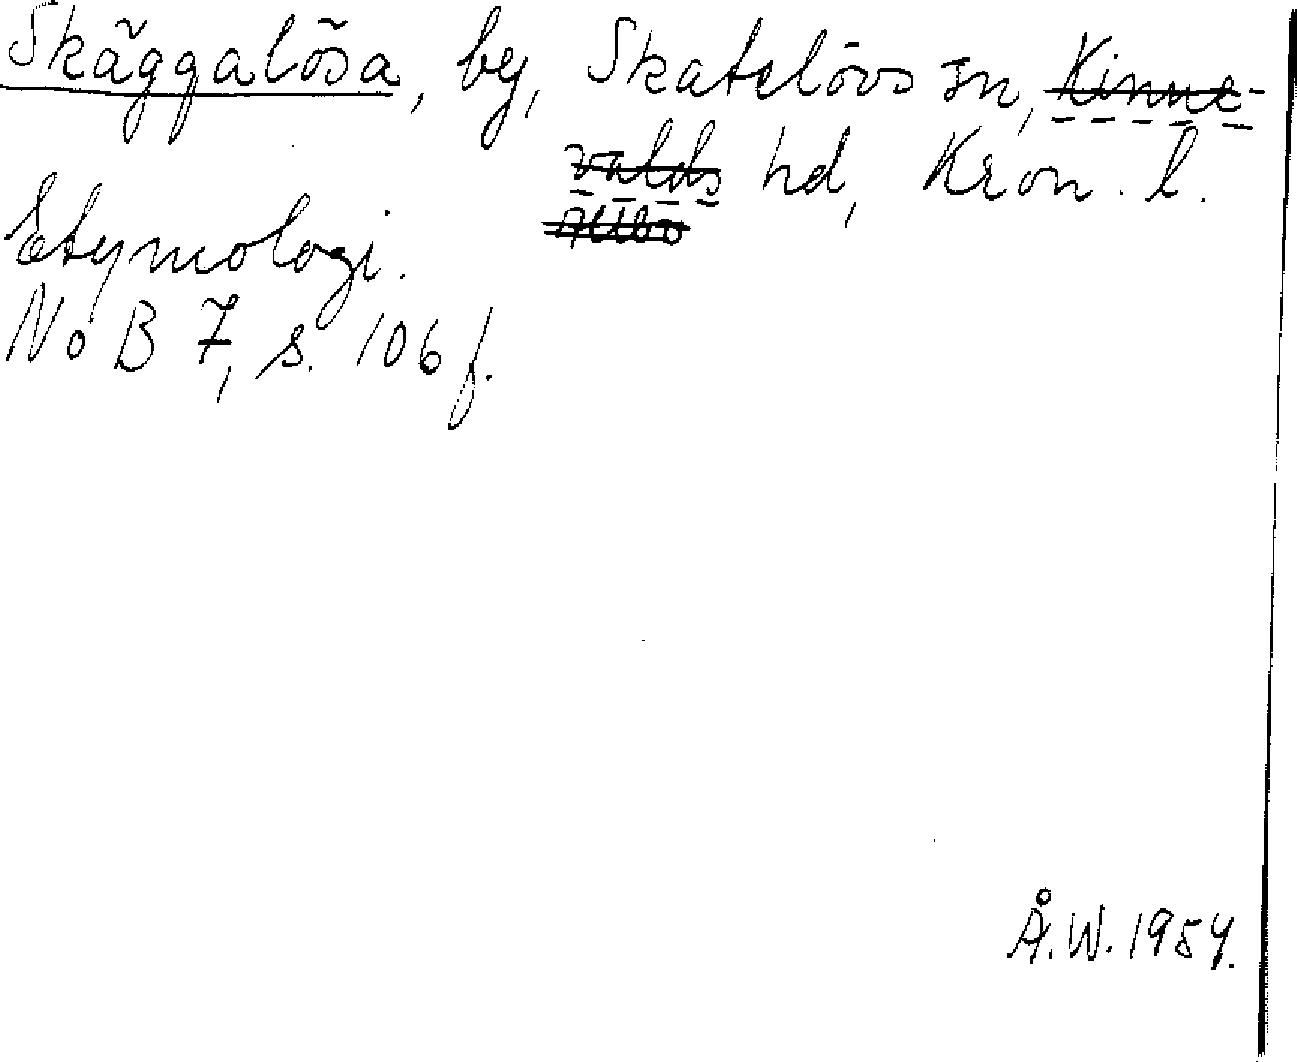 Skäggalösa, by, Skatelövs sn, Kinne-
valds hd, Kron. l.
Allbo
Etymologi.
NoB 7, s. 106 f.
Å.W. 1954.